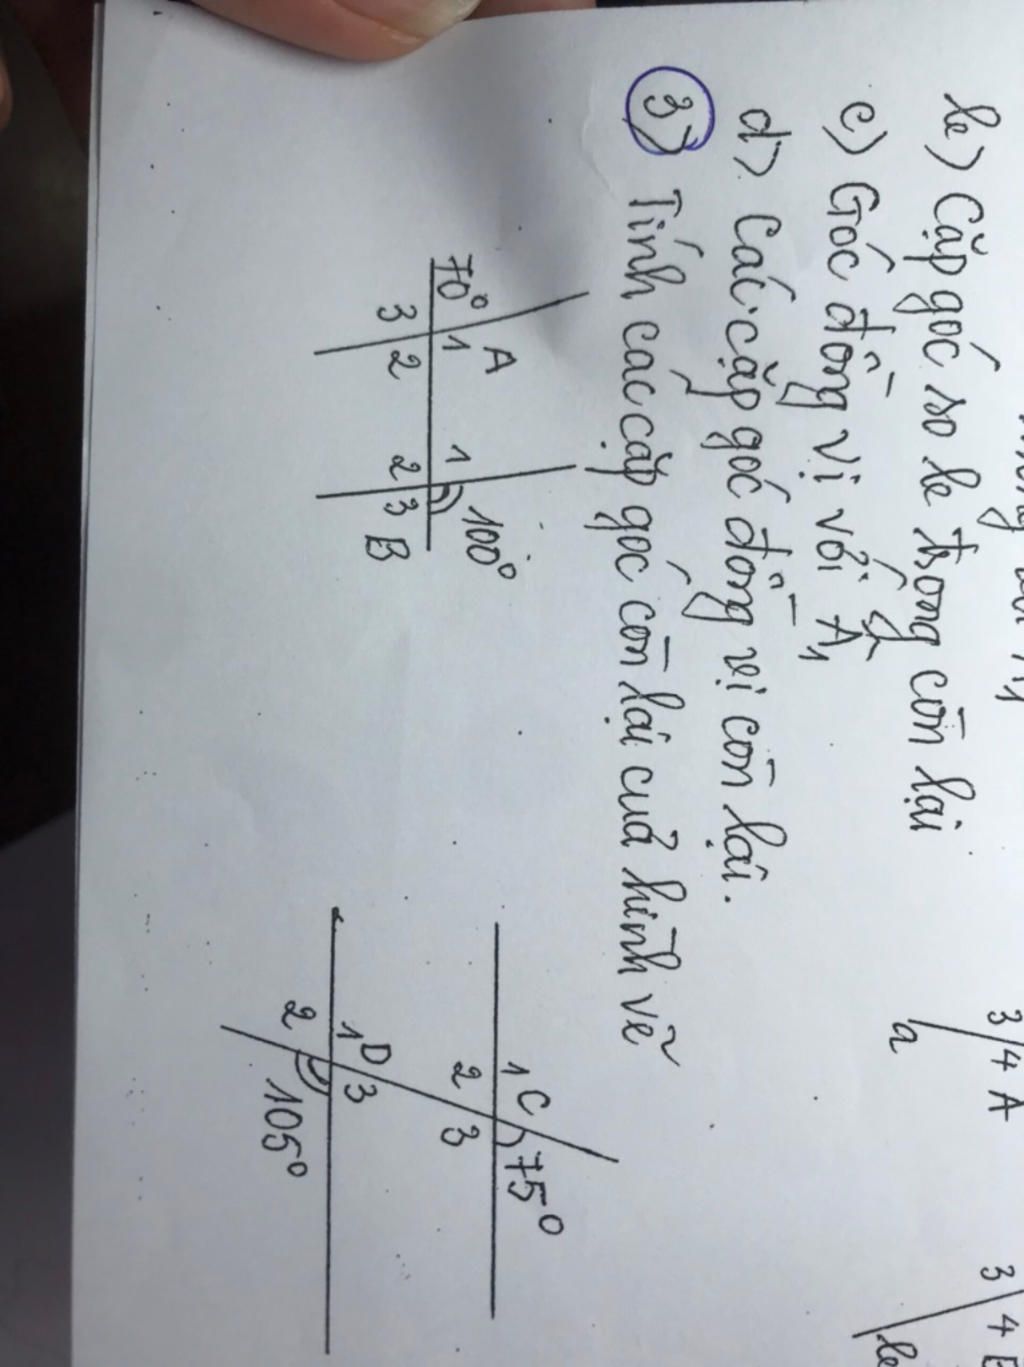 3 4 A
a
3 4
b) Cặp góc so le trong còn lại
c) Góc đồng vị với A1
d) Các cặp góc đồng vị còn lại.
3) Tính các cặp góc còn lại của hình vẽ
70° 1 A
3 2
1 100°
2 3 B
1 C 75°
2 3
1 D 3
2 105°